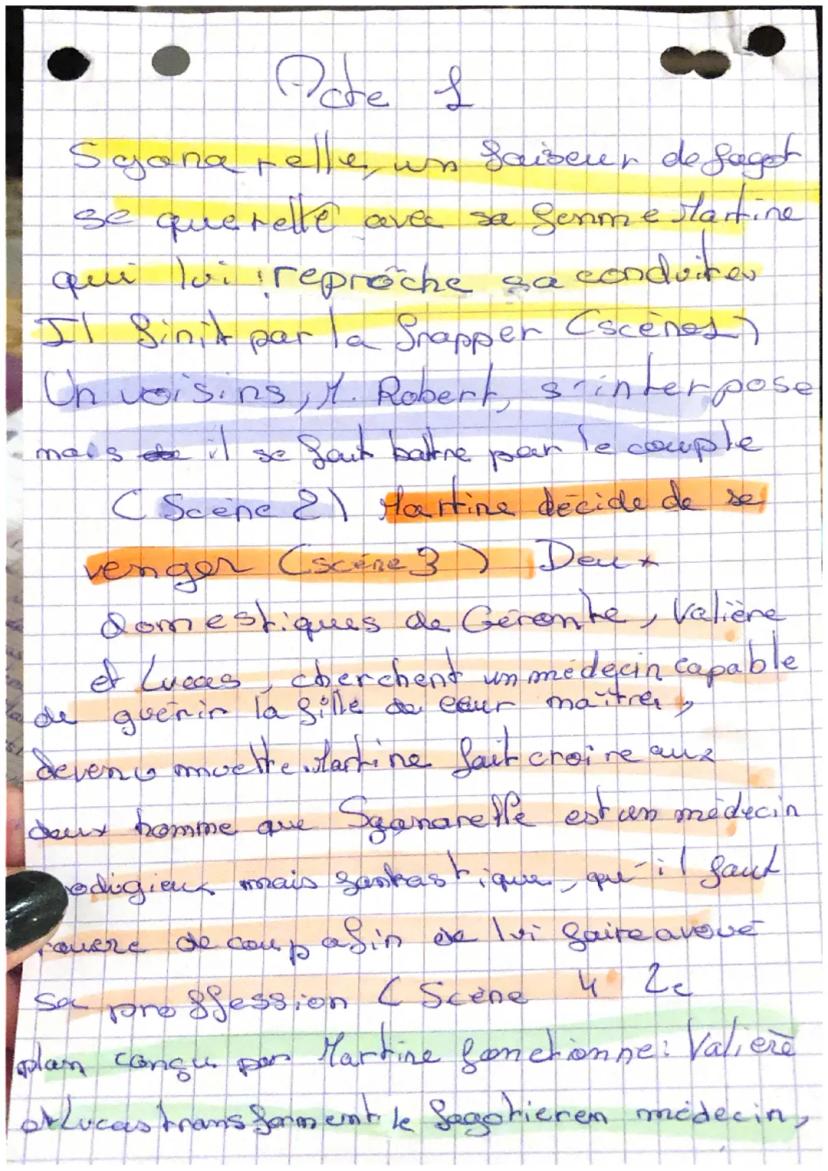 Acte 1
Sganarelle, un faiseur de fagot
se querelle avec sa femme Martine
qui lui reproche sa conduite
Il finit par la frapper (scène1)
Un voisins, M. Robert, s'interpose
mais il se fait battre par le couple
(Scène 2) Martine décide de se
venger (scène 3) Deux
domestiques de Géronte, Valière
et Lucas, cherchent un médecin capable
de guérir la fille de leur maître,
devenu muette. Martine fait croire aux
deux homme que Sganarelle est un médecin
odigieux mais fantastique, qu'il faut
rouere de coup afin de lui faire avoué
sa proffession (Scène 4 Le
plan conçu par Martine fonctionne: Valière
et Lucas transforment le fagotier en médecin,